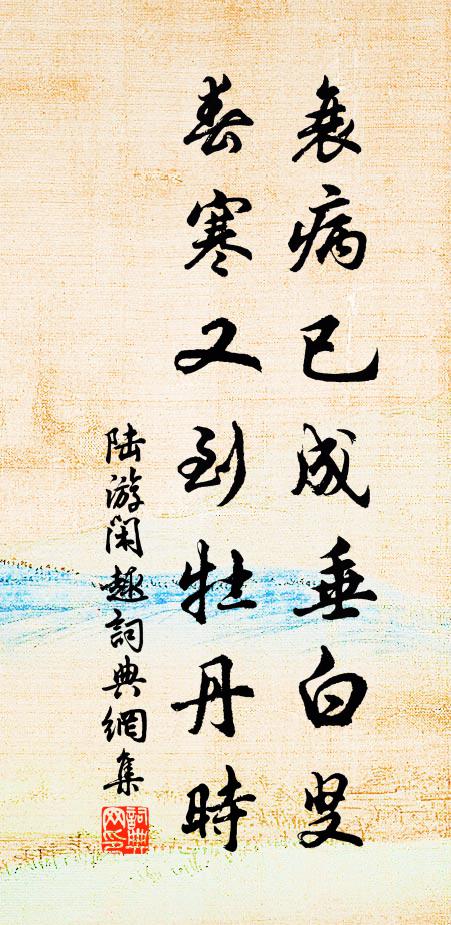 衰病已成垂白叟
春寒又到牡丹時
陆游闲趣詞典網集
詞典網印